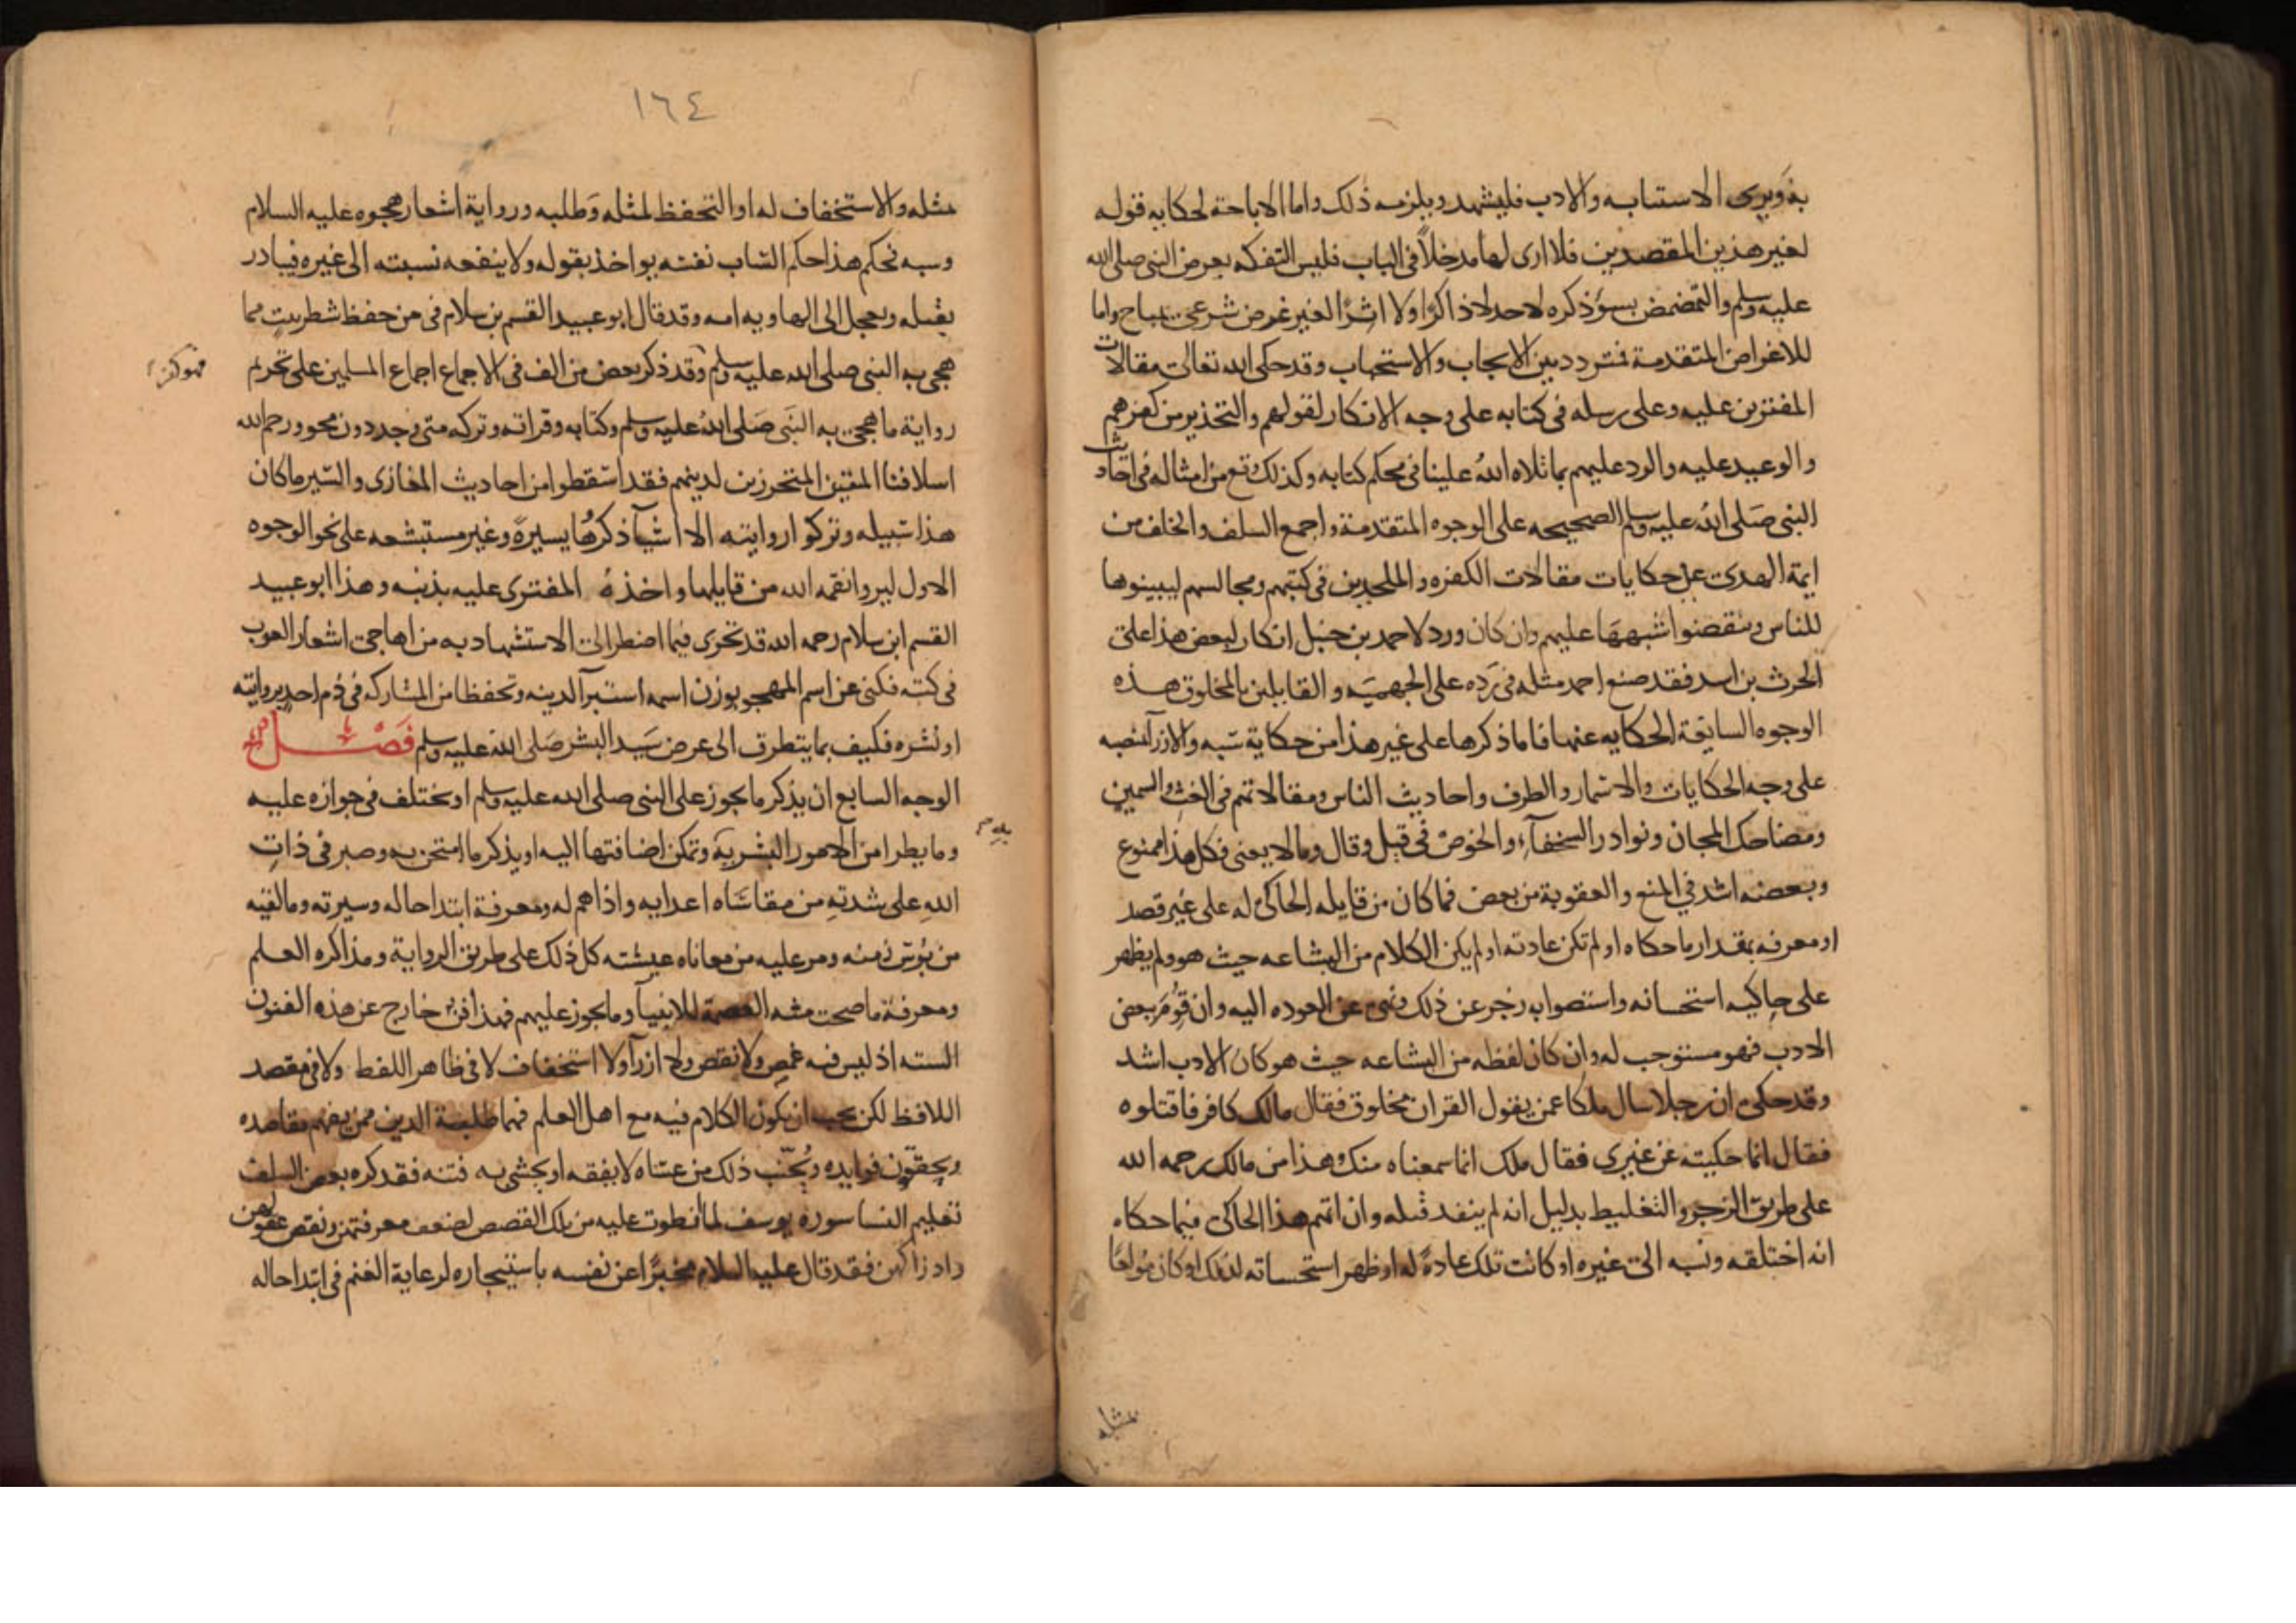 به ويرى الاستتابه والادب فليشهد ويلزمه ذلك واما الاباحة لحكايه قوله
لغير هذين المقصدين فلا ارى لها مدخلاً فى الباب فليس التفكه بعرض النبى صلى الله
عليه وسلم والتمضمض بسؤ ذكره لاحد لا ذاكرًا ولا اثرًا لغير غرض شرعى بمباح واما
للاغراض المتقدمة فمتردد بين الايجاب والاستحباب وقد حكى الله تعالى مقالات
المفترين عليه وعلى رسله فى كتابه على وجه الانكار لقولهم والتحذير من كفرهم
والوعيد عليه والرد عليهم بما تلاه اللهُ علينا فى محكم كتابه وكذلك وقع من امثاله فى احاديث
النبى صَلى اللهُ عليه وسلم الصحيحه على الوجوه المتقدمة واجمع السلف والخلف من
ايمة الهدى على حكايات مقالات الكفره والملحدين فى كتبهم ومجالسهم ليبينوها
للناس وينقضوا شبهها عليهم وان كان ورد لاحمد بن حنبل انكار لبعض هذا على
الحرث بن اسد فقد صنع احمد مثله فى رَده على الجهميَه والقايلين بالمخلوق هذه
الوجوه السايغة الحكايه عنها فاما ذكرها على غير هذا من حكاية سَبه والازرآ بمنصبه
على وجه الحكايات والاسمار والطرف واحاديث الناس ومقالاتهم فى الغث والسمين
ومضاحك المجان ونوادر السخفآء والخوض فى قيل وقال وما لا يعنى فكل هذا ممنوع
وبعضه اشد في المنع والعقوبة من بعض فما كان من قايله الحاكى له على غير قصد
او معرفه بمقدار ما حكاه او لم تكن عادته او لم يكن الكلام من البشاعه حيث هو ولم يظهر
على حاكيه استحسانه واستصوابه زجر عن ذلك ونهى عن العوده اليه وان قُوِّم ببعض
الادب فهو مستوجب له وان كان لفظه من البشاعه حيث هو كان الادب اشد
وقد حكى ان رجلا سال ملكا عمن يقول القران مخلوق فقال مالك كافر فاقتلوه
فقال انما حكيته عن غيرى فقال ملك انما سمعناه منك وهذا من مالك رحمه الله
على طريق الزجر والتغليط بدليل انه لم ينفذ قتله وان اتهم هذا الحاكى فيما حكاه
انه اختلقه ونسبه الى غيره او كانت تلك عادةً له او ظهر استحسانه لذلك او كان مُولعًا
مثله
١٦٤
مثله والاستخفاف له او التحفظ لمثله وَطلبه ورواية اشعار هجوه عليه السلام
وسبه فحكم هذا حكم السّاب نفسه يواخذ بقوله ولا ينفعه نسبته الى غيره فيبادر
بقتله ويعجل الى الهاويه امه وقد قال ابو عبيد القسم بن سلام فى من حفظ شطر بيت مما
هجى به النبى صلى الله عليه وسلم وقد ذكر بعض من الف فى الاجماع اجماع المسلمين على تحريم
فهو كفر
رواية ما هجى به النَبى صَلى اللهُ عليه وسلم وكتابه وقراته وتركه متى وجد دون محو ورحم الله
اسلافنا المتقين المتحرزين لدينهم فقد اسقطوا من احاديث المغازى والسّير ما كان
هذا سَبيله وتركوا روايته الا اشيآ ذكرُها يسيرةً وغير مستبشعه على نحو الوجوه
الاول ليروا نقمه الله من قايلها واخذهُ المفترى عليه بذنبه وهذا ابو عبيد
القسم ابن سلام رحمه الله قد تحرى فيما اضطر الى الاستشهاد به من اهاجى اشعار العرب
فى كتبه فكنى عن اسم المهجو بوزن اسمه استبرآ لدينه وتحفظا من المشاركه فى ذم احد بروايته
او نشره فكيف بما يتطرق الى عرض سَيد البشر صَلى الله عليه وسلم فَصْـــل
الوجه السابع ان يذكر ما يجوز على النبى صلى الله عليه وسلم او يختلف فى جوازه عليه
وما يطرا من الامور البشريه وتمكن اضافتها اليه او يذكر ما امتحن به وصبر فى ذاتِ
اللهِ على شدتهِ من مقاسَاه اعدايه واذاهم له ومعرفة ابتدا حاله وسيرته وما لقيه
من بُوس زمنه ومر عليه من معاناه عيشته كل ذلك على طريق الرواية ومذاكره العلم
ومعرفة ما صحت منه العصمة للانبيآ وما يجوز عليهم فهذا فن خارج عن هذه الفنون
السته اذ ليس فيه غمص ولا نقص ولا ازرآ ولا استخفاف لا فى ظاهر اللفظ ولا فى مقصد
اللافظ لكن يجب ان يكون الكلام فيه مع اهل العلم فهما طلبة الدين ممن يفهم مقاصده
ويحققون فوايده ويُجنَّب ذلك من عساه لا يفقه او يخشى به فتنه فقد كره بعض السلف
تعليم النسا سوره يوسف لما انطوت عليه من تلك القصص لضعف معرفتهن ونقص عقولهن
وادراكهن فقد قال عليه السلام مخبرًا عن نفسه باستيجاره لرعاية الغنم فى ابتدا حاله